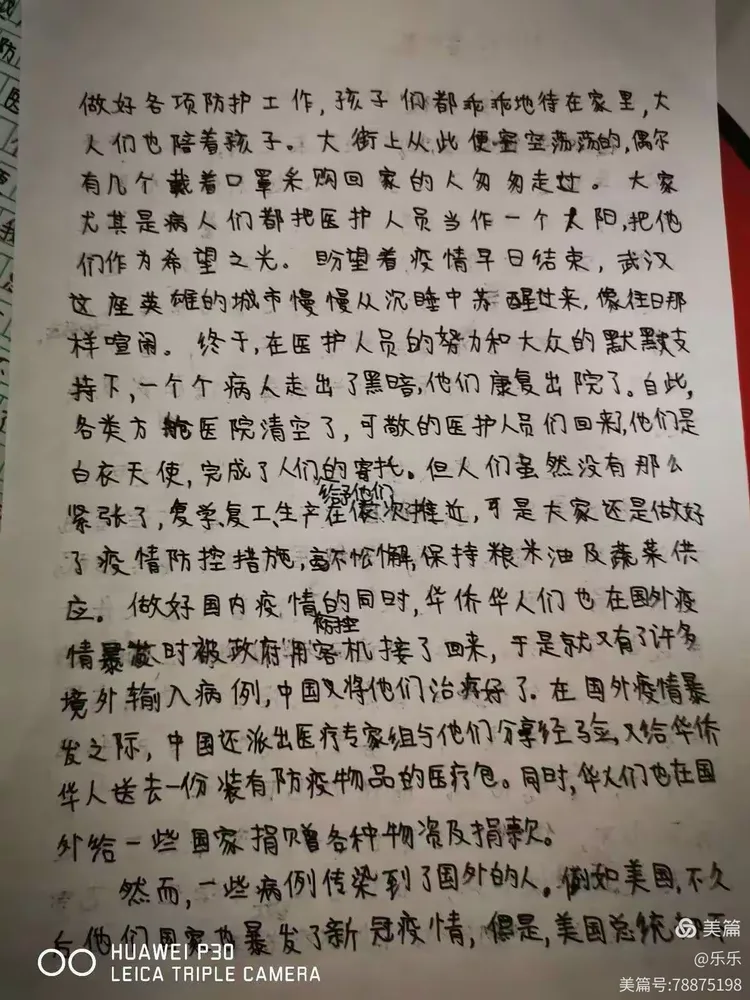 做好各项防护工作，孩子们都乖乖地待在家里，大
人们也陪着孩子。大街上从此便空荡荡的，偶尔
有几个戴着口罩采购回家的人匆匆走过。大家
尤其是病人们都把医护人员当作一个太阳，把他
们作为希望之光。盼望着疫情早日结束，武汉
这座英雄的城市慢慢从沉睡中苏醒过来，像往日那
样喧闹。终于，在医护人员的努力和大众的默默支
持下，一个个病人走出了黑暗，他们康复出院了。自此，
各类方舱医院清空了，可敬的医护人员们回来，他们是
白衣天使，完成了人们给予他们的寄托。但人们虽然没有那么
紧张了，复学、复工、生产在依次推近，可是大家还是做好
了疫情防控措施，不松懈，保持粮米油及蔬菜供
应。做好国内疫情防控的同时，华侨华人们也在国外疫
情暴发时被政府用客机接了回来，于是就又有了许多
境外输入病例，中国又将他们治疗好了。在国外疫情暴
发之际，中国还派出医疗专家组与他们分享经验，又给华侨
华人送去一份装有防疫物品的医疗包。同时，华人们也在国
外给一些国家捐赠各种物资及捐款。
然而，一些病例传染到了国外的人。例如美国，不久
他们国家也暴发了新冠疫情，但是，美国总统
HUAWEI P30
LEICA TRIPLE CAMERA
美篇
@乐乐
美篇号:78875198